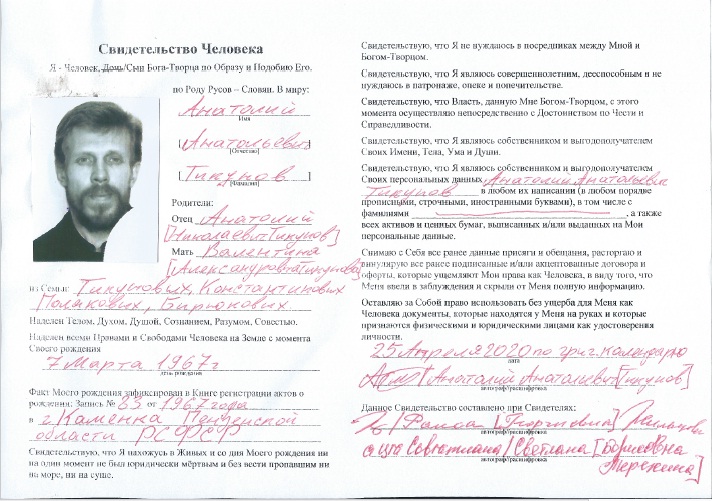 Свидетельство Человека
Я - Человек, Дочь/Сын Бога-Творца по Образу и Подобию Его.
по Роду Русов – Словян. В миру:
Анатолий
Имя
[Анатольевич]
(Отчество)
[Тикунов]
(Фамилия)
Родители:
Отец Анатолий
[Николаевич Тикунов]
Мать Валентина
[Александровна Тикунова]
из Семьи: Тикуновых, Константиновых
Поляковых, Бирюковых
Наделен Телом, Духом, Душой, Сознанием, Разумом, Совестью.
Наделен всеми Правами и Свободами Человека на Земле с момента
Своего рождения
7 Марта 1967г
день рождения
Факт Моего рождения зафиксирован в Книге регистрации актов о
рождении: Запись № 85 от 1967 года
в г. Каменка Пензенской
области РСФСР
Свидетельствую, что Я нахожусь в Живых и со дня Моего рождения ни
на один момент не был юридически мёртвым и без вести пропавшим ни
на море, ни на суше.
Свидетельствую, что Я не нуждаюсь в посредниках между Мной и
Богом-Творцом.
Свидетельствую, что Я являюсь совершеннолетним, дееспособным и не
нуждаюсь в патронаже, опеке и попечительстве.
Свидетельствую, что Власть, данную Мне Богом-Творцом, с этого
момента осуществляю непосредственно с Достоинством по Чести и
Справедливости.
Свидетельствую, что Я являюсь собственником и выгодополучателем
Своих Имени, Тела, Ума и Души.
Свидетельствую, что Я являюсь собственником и выгодополучателем
Своих персональных данных Анатолий Анатольевич
Тикунов в любом их написании (в любом порядке
прописными, строчными, иностранными буквами), в том числе с
фамилиями , а также
всех активов и ценных бумаг, выписанных и/или выданных на Мои
персональные данные.
Снимаю с Себя все ранее данные присяги и обещания, расторгаю и
аннулирую все ранее подписанные и/или акцептованные договора и
оферты, которые ущемляют Мои права как Человека, в виду того, что
Меня ввели в заблуждения и скрыли от Меня полную информацию.
Оставляю за Собой право использовать без ущерба для Меня как
Человека документы, которые находятся у Меня на руках и которые
признаются физическими и юридическими лицами как удостоверения
личности.
25 Апреля 2020 по григ. календарю
дата
Анатолий Анатольевич [Тикунов]
автограф/расшифровка
Данное Свидетельство составлено при Свидетелях:
[Георгиевна]
автограф/расшифровка
Светлана [Борисовна
автограф/расшифровка
Мережина]